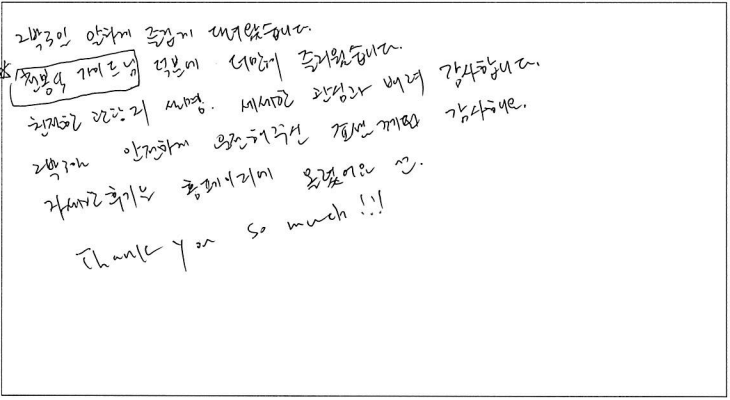 2박3일 알차게 즐겁게 다녀왔습니다.
가이드님 덕분에 더많이 즐거웠습니다.
친절한 관광지 설명. 세세한 관심과 배려 감사합니다.
2박3일 안전하게 운전해주신 께도 감사해요.
자세한 후기는 홈페이지에 올렸어요 ^^.
Thank you so much!!!